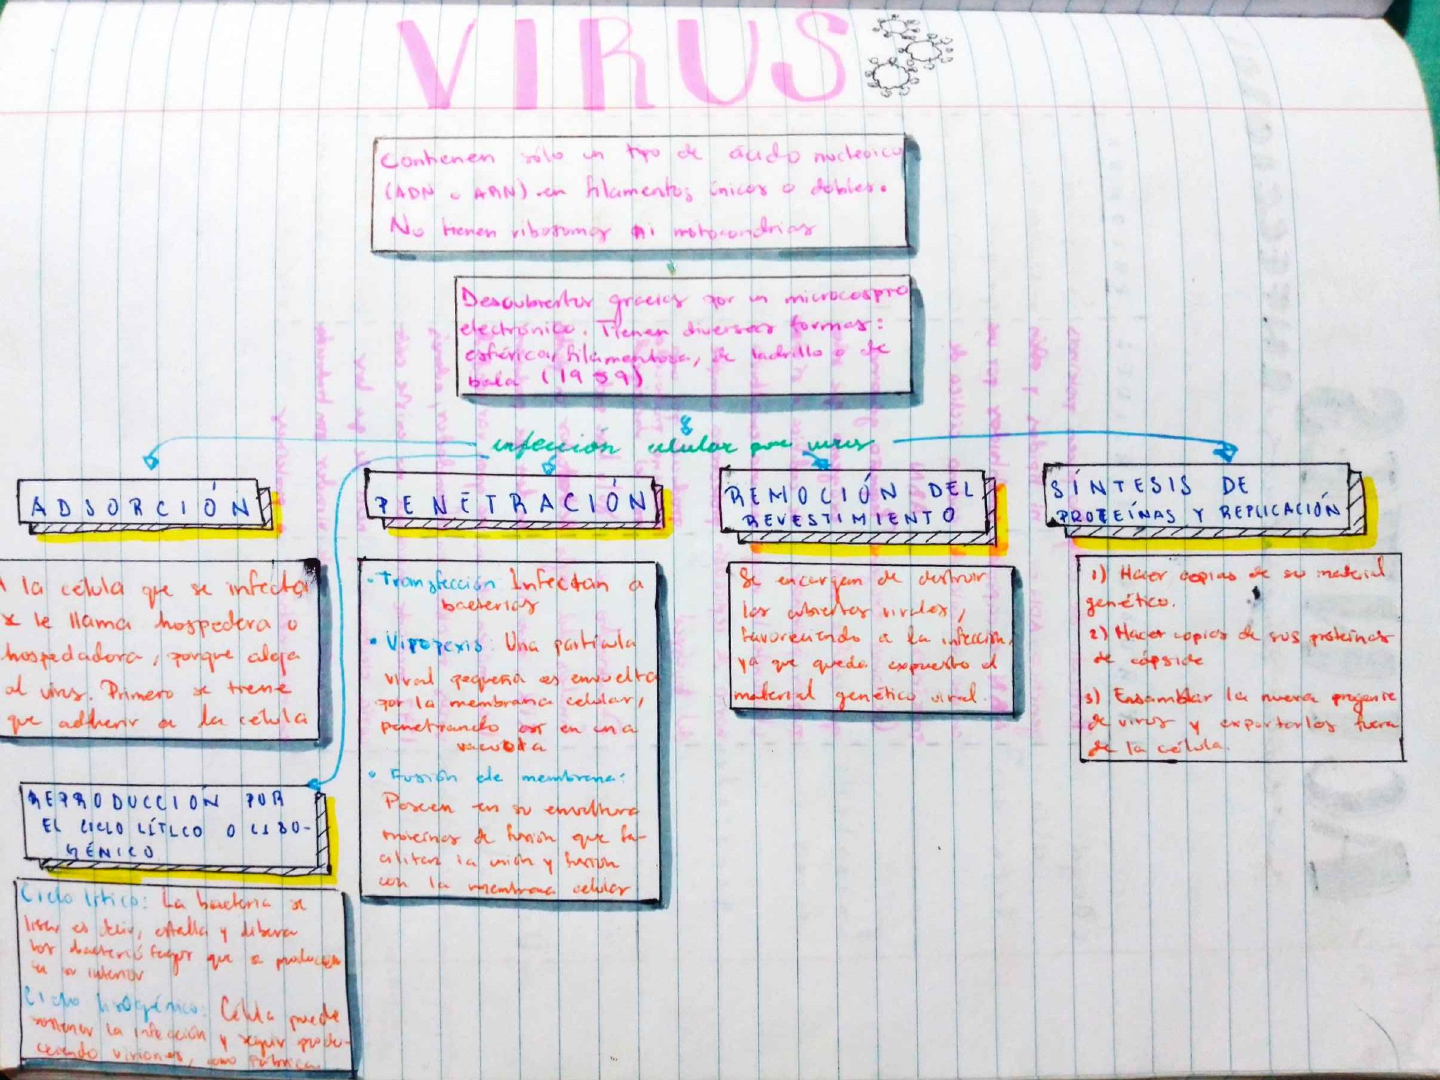 VIRUS
Contienen sólo un tipo de ácido nucleico
(ADN o ARN) en filamentos únicos o dobles.
No tienen ribosomas ni mitocondrias
Descubiertos gracias por un microcospro
electrónico. Tienen diversas formas:
esférica, filamentosa, de ladrillo o de
bala (1959)
infección celular por virus
ADSORCIÓN
A la célula que se infecta
se le llama hospedera o
hospedadora, porque aloja
al virus. Primero se tiene
que adherir a la célula
PENETRACIÓN
• Transfección Infectan a
bacterias
• Viropexis: Una partícula
viral pequeña es envuelta
por la membrana celular,
penetrando así en una
vacuola
• Fusión de membrana:
Poseen en su envoltura
proteínas de fusión que fa-
cilitan la unión y fusión
con la membrana celular
REMOCIÓN DEL
REVESTIMIENTO
Se encargan de destruir
las cubiertas virales,
favoreciendo a la infección,
ya que queda expuesto el
material genético viral.
SÍNTESIS DE
PROTEÍNAS Y REPLICACIÓN
1) Hacer copias de su material
genético.
2) Hacer copias de sus proteínas
de cápside
3) Ensamblar la nueva progenie
de virus y exportarlos fuera
de la célula.
REPRODUCCIÓN POR
EL CICLO LÍTICO O LISO-
GÉNICO
Ciclo lítico: La bacteria se
lisa es decir, estalla y libera
los bacteriófagos que se producen
en su interior
Ciclo lisogénico: Célula puede
sostener la infección y seguir produ-
ciendo viriones, como fábrica